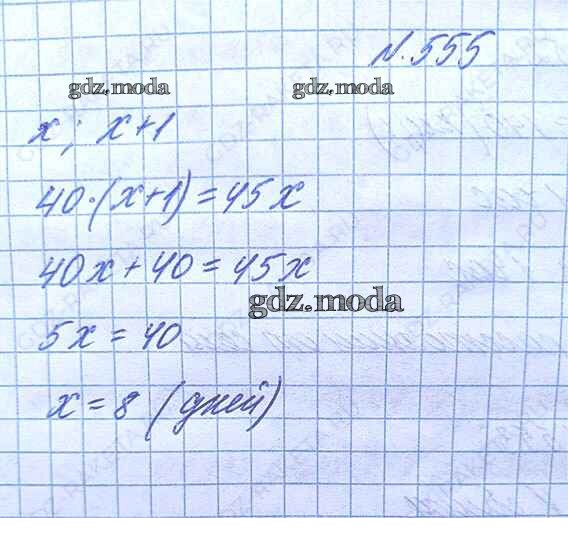 N. 555
gdz.moda gdz.moda
x; x+1
40·(x+1)=45x
40x+40=45x
gdz.moda
5x=40
x=8 (дней)